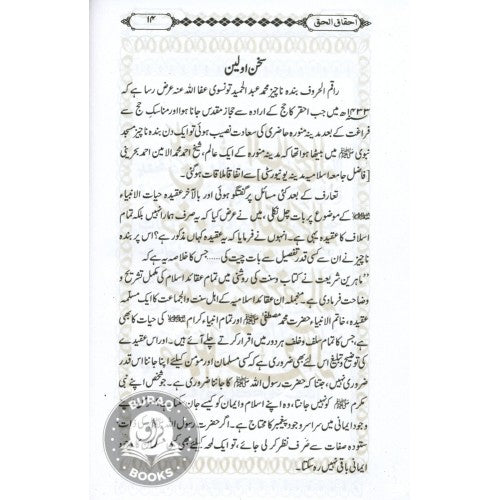 احقاق الحق
۱۴
سخن اولین
راقم الحروف بندہ ناچیز محمد عبد الحمید تونسوی عفا اللہ عنہ عرض رسا ہے کہ
۱۴۳۳ھ میں جب احقر کا حج کے ارادہ سے حجاز مقدس جانا ہوا اور مناسکِ حج سے
فراغت کے بعد مدینہ منورہ حاضری کی سعادت نصیب ہوئی تو ایک دن بندہ ناچیز مسجد
نبوی ﷺ میں بیٹھا ہوا تھا کہ مدینہ منورہ کے ایک عالم، شیخ احمد محمد الامین احمد بحریٹی
[فاضل جامعہ اسلامیہ مدینہ یونیورسٹی] سے اتفاقاً ملاقات ہوگئی۔
تعارف کے بعد کئی مسائل پر گفتگو ہوئی اور بالآخر عقیدہ حیات الانبیاء
کے موضوع پر بات چل نکلی، میں نے عرض کیا کہ یہ صرف ہمارا نہیں بلکہ تمام
اسلاف کا عقیدہ یہی ہے۔ انہوں نے فرمایا کہ یہ عقیدہ کہاں مذکور ہے؟ اس پر بندہ
ناچیز نے ان سے کسی قدر تفصیل سے بات چیت کی..... جس کا خلاصہ یہ ہے کہ
”ماہرین شریعت نے کتاب و سنت کی روشنی میں تمام عقائد اسلام کی مکمل تشریح و
وضاحت فرما دی ہے۔ منجملہ ان عقائد اسلامیہ کے اہل سنت والجماعت کا ایک مسلمہ
عقیدہ، خاتم الانبیاء حضرت محمد مصطفیٰ ﷺ اور تمام انبیاء کرام کی حیات کا بھی
ہے، جس کا تمام سلف و خلف ہر دور میں اقرار کرتے چلے آئے ہیں۔ اور اس عقیدے
کی توضیح و تبلیغ اس لئے بھی ضروری ہے کہ کسی مسلمان اور مؤمن کیلئے اپنا جاننا اس قدر
ضروری نہیں، جتنا کہ حضرت رسول اللہ ﷺ کا جاننا ضروری ہے۔ جو شخص اپنے نبی
مکرم ﷺ کو نہیں جانتا، وہ اپنے اسلام و ایمان کو کیسے جان
وجود ایمانی میں سراسر وجود پیغمبر کا محتاج ہے۔ اگر حضرت رسول اللہ
ستودہ صفات سے صرف نظر کر لی جائے، تو ایک لمحہ کیلئے بھی
ایمانی باقی نہیں رہ سکتا۔
BURAQ
BOOKS